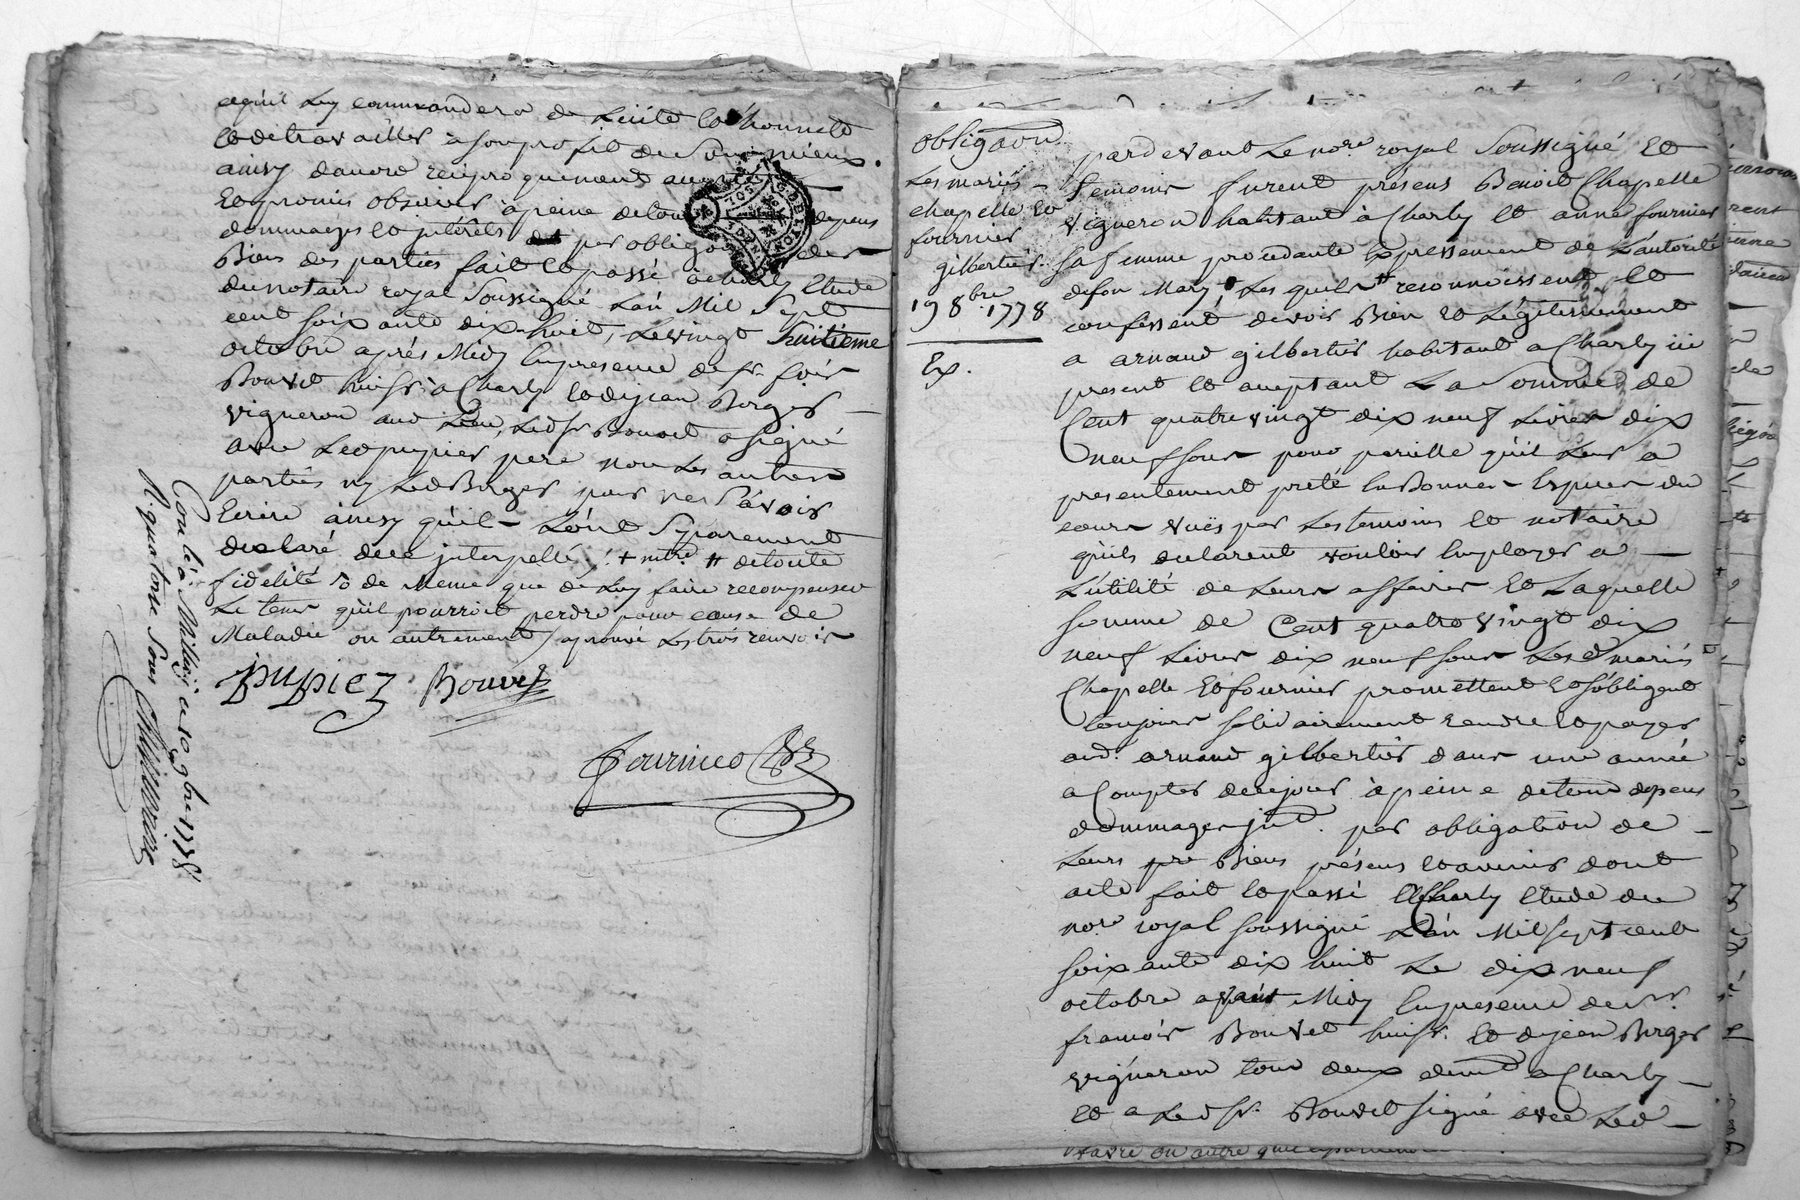 cequil luy commandera de licite et honneste
et de travailler a son profit de son mieux.
ainsy daccord reciproquement
et promis observer à peine de tous depens
dommages et jnterêts par obligaon des
Biens des parties fait et passé à charly Etude
du notaire royal soussigné L'an Mil sept
cent soixante dix-huit, le vingt huitieme
octobre aprés Midy En presence de sr. frois
Bouvet huissr. à Charly et de jean Berger
vigneron aud Lieu, Led sr Bouvet a signé
avec Led pupier pere non les autres
parties ny Led Berger pour ne sçavoir
Ecrire ainsy qu'il L'ont separement
declaré de ce jnterpellés /. + de toute
fidelité de Meme que de luy faire recompenser
Le tems quil pourroit perdre pour cause de
Maladie ou autrement / aprouvé les trois renvois
PUPIEZ Bouvet
Fournier
Con lé à Millery ce 10 9bre 1778
R quatorze sous
Obligaon
Les mariés
chapelle et
fournier
gilbertier
19 8bre 1778
Ex.
pardevant Le nore. royal soussigné Et
temoins furent présens Benoit Chapelle
vigneron habitant à Charly et anne fournier
sa femme procedante Expressement de L'autorité
de son Mary, Lesquels reconnoissent et
confessent devoir Bien et Légitimement
a arnaud gilbertier habitant a Charly ici
present et aceptant La Somme de
Cent quatre vingt dix neuf Livres dix
neuf sous pour pareille qu'il Leur a
presentement prété En Bonnes Especes du
cours vuës par Les temoins et notaire
qu'ils declarent vouloir Employer a
L'utilité de Leurs affaires et Laquelle
somme de Cent quatre vingt dix
neuf Livres dix neuf sous Les d mariés
Chapelle et fournier promettent et s'obligent
toujours solidairement rendre et payer
aud. arnaud gilbertier dans une année
a Compter de ce jour à peine de tous depens
dommages jnts. par obligation de
Leurs pre Biens présens et avenir dont
acte fait et passé a Charly Etude du
nore royal soussigné L'an Mil sept cent
soixante dix huit Le dix neuf
octobre avant Midy En presence de sr.
francois Bouvet huissr. et de jean Berger
vigneron tous deux demt a Charly
et a Led sr. Bouvet signé avec Led